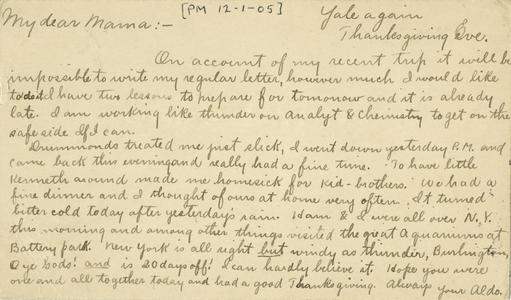 [PM 12-1-05]
My dear Mama:-
Yale again
Thanksgiving Eve.
On account of my recent trip it will be
impossible to write my regular letter, however much I would like
to do it I have two lessons to prepare for tomorrow and it is already
late. I am working like thunder on Analyt & Chemistry to get on the
safe side If I can.
Drummonds treated me just slick, I went down yesterday P.M. and
came back this evening and really had a fine time. To have little
Kenneth around made me homesick for kid-brothers. We had a
fine dinner and I thought of ours at home very often. It turned
bitter cold today after yesterday's rain. Ham & I were all over N.Y.
this morning and among other things visited the great Aquariums at
Battery park. New York is all right but windy as thunder, Burlington,
Oye Gods! and is 20 days off! I can hardly believe it. Hope you were
one and all together today and had a good Thanksgiving. Always your Aldo.